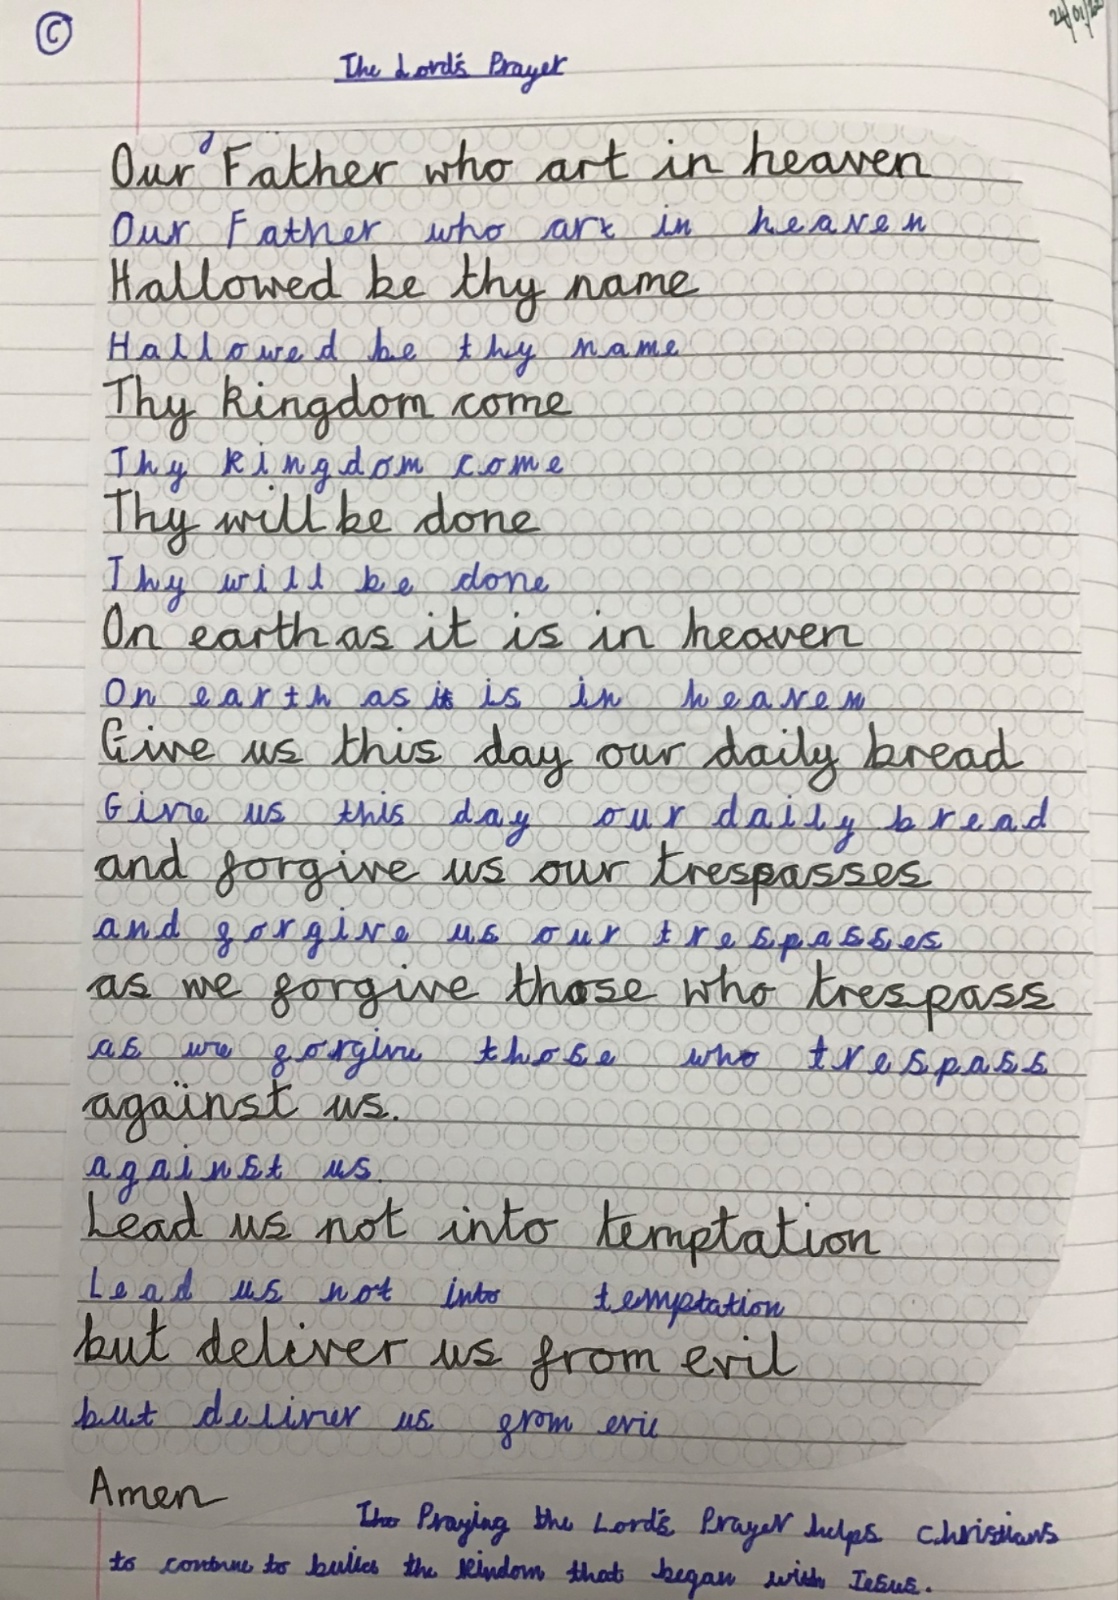 ©
24/01/
The Lord's Prayer
Our Father who art in heaven
Our Father who art in heaven
Hallowed be thy name
Hallowed be thy name
Thy kingdom come
Thy kingdom come
Thy will be done
Thy will be done
On earth as it is in heaven
On earth as it is in heaven
Give us this day our daily bread
Give us this day our daily bread
and forgive us our trespasses
and forgive us our trespasses
as we forgive those who trespass
as we forgive those who trespass
against us.
against us.
Lead us not into temptation
Lead us not into temptation
but deliver us from evil
but deliver us from evil
Amen
The Praying the Lord's Prayer helps Christians
to contnue to build the kindom that began with Jesus.